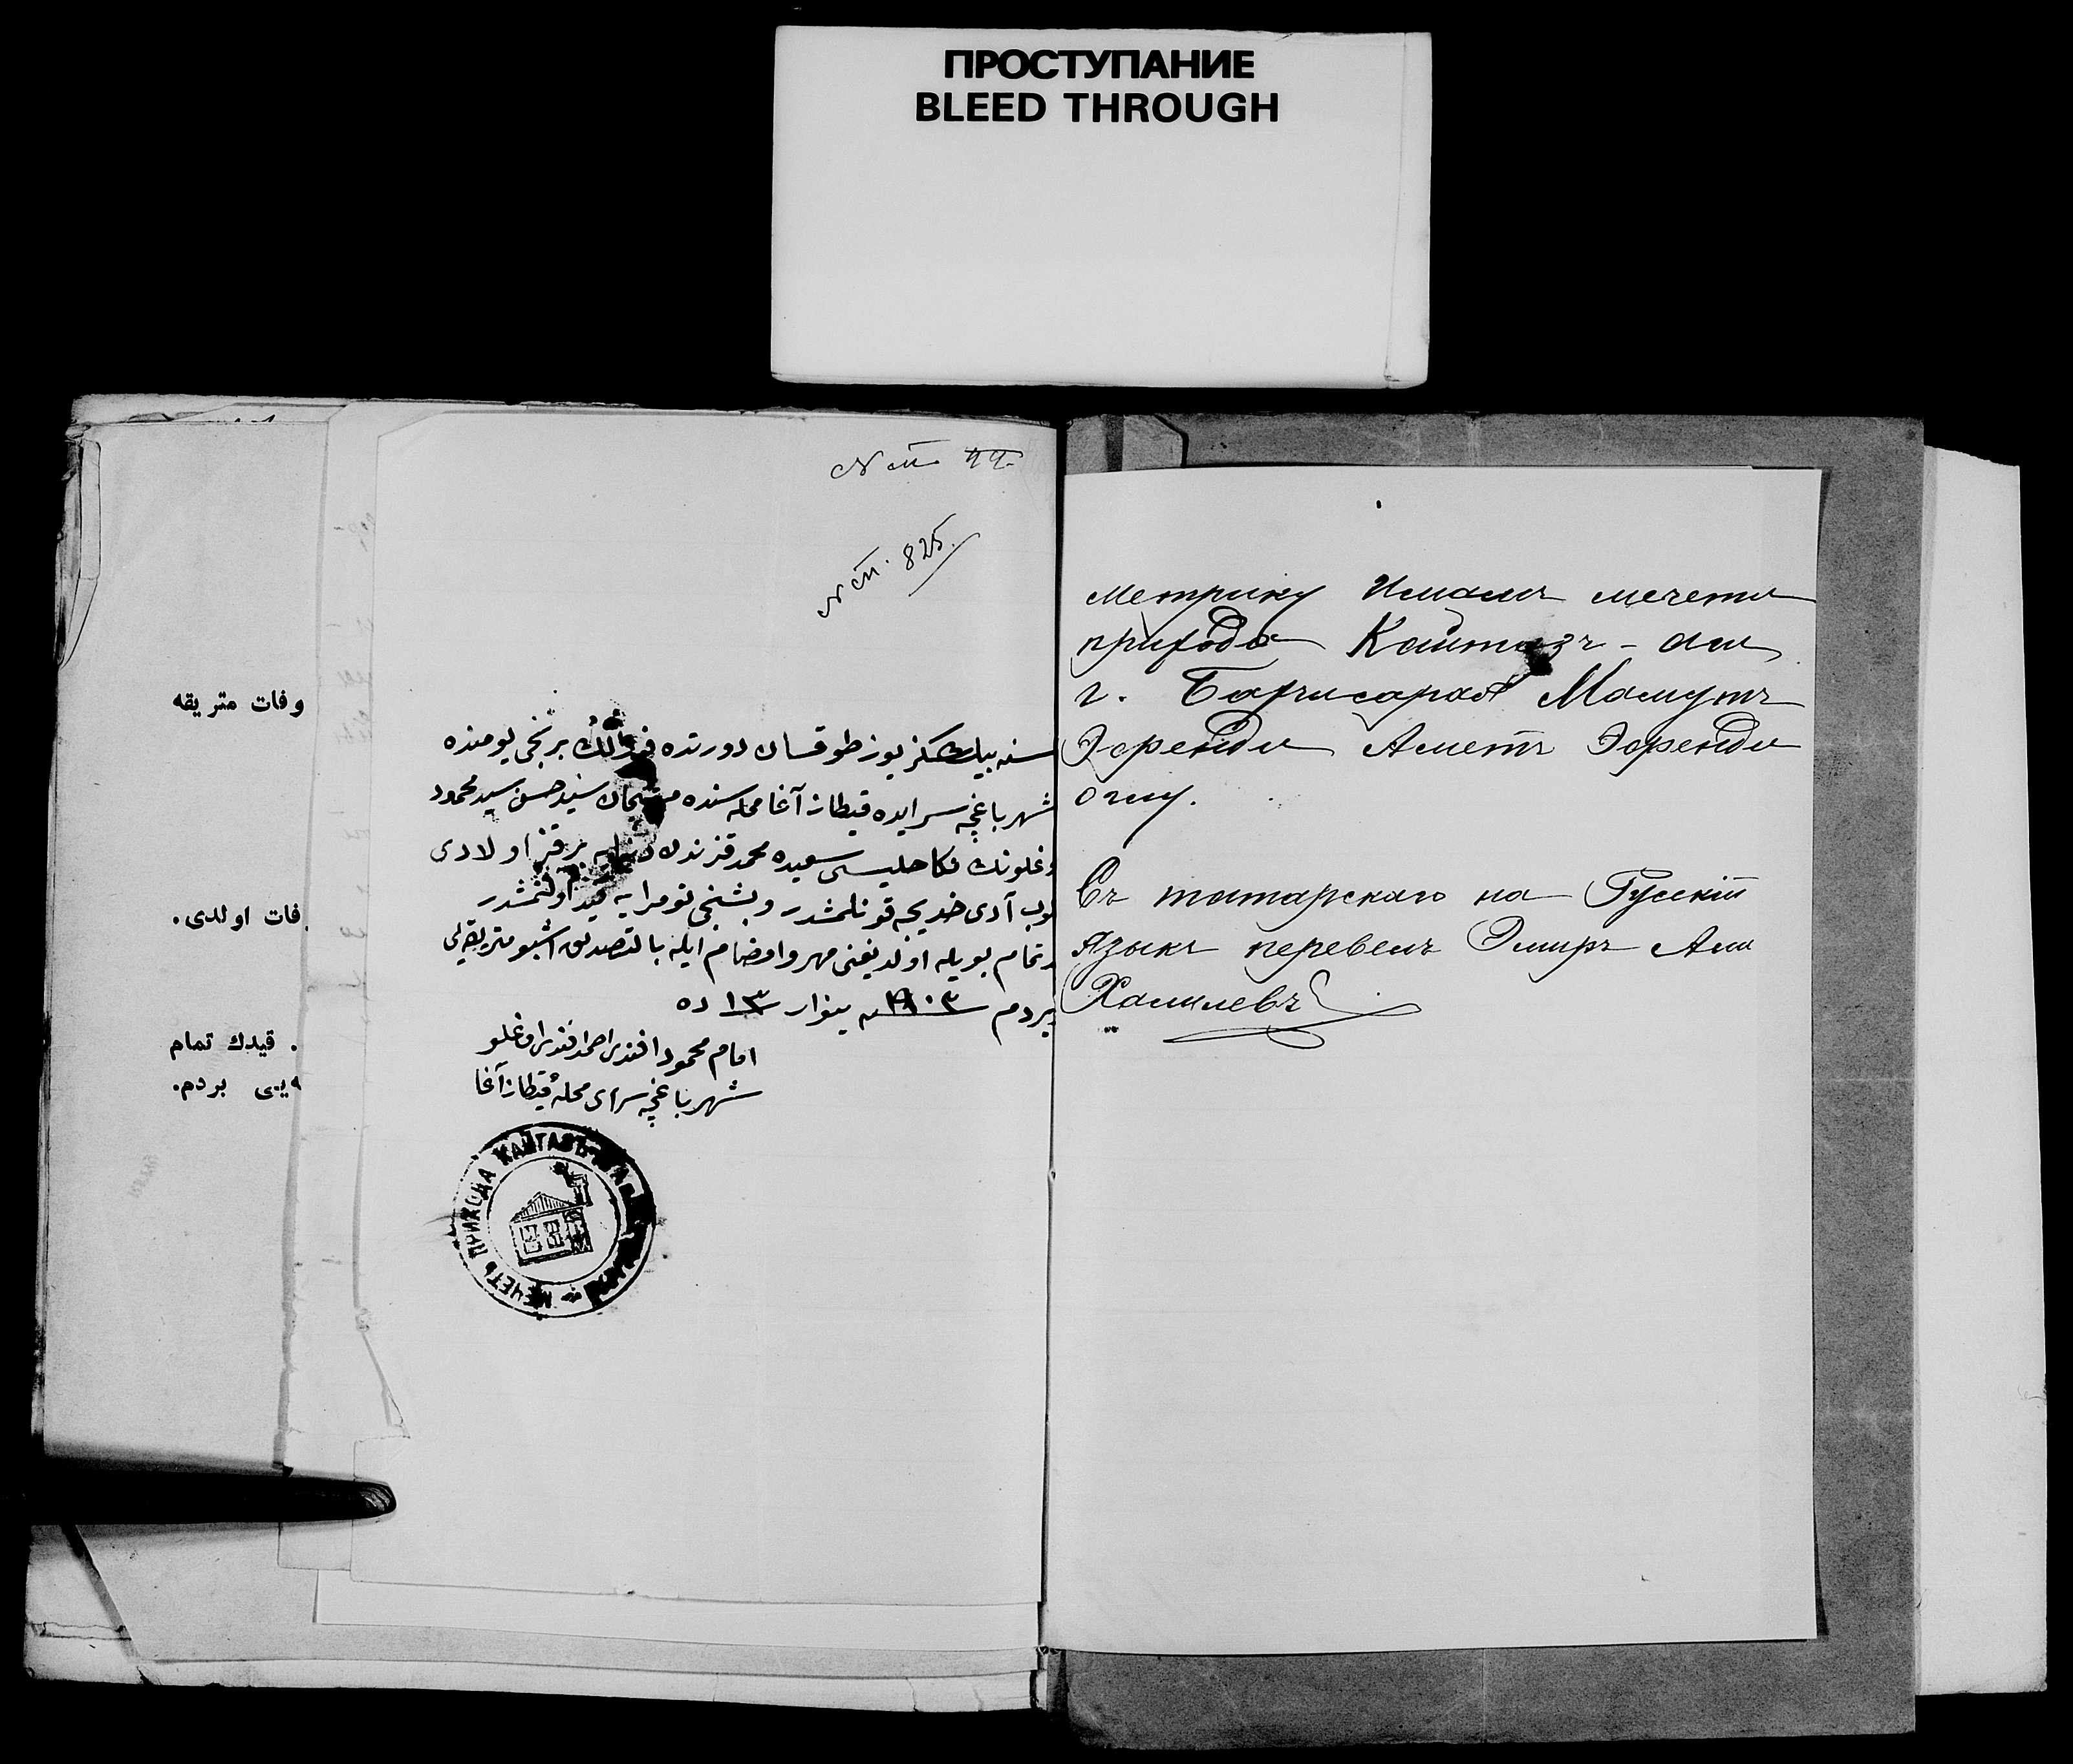 ПРОСТУПАНИЕ
BLEED THROUGH
وفات متریقه
فات اولدی.
. قیدك تمام
بردم.
N 825.
سنه بیك سکز یوز طوقسان دورتده برنجی یومنده
شهر باغچه سرایده قیطاز آغا محله سنده سید حسن سید محمود
سعیده محمد قزندن بر قز اولادی
آدی خدیجه قونلمشدر و بشنجی نومرایه قید اولنمشدر
تمام بویله اولدیغنی مهر و امضام ایله بالتصدیق اشبو متریقه لی
بردم ١٩٠٣ ینوار ١٣ ده
امام محمود افندی احمد افندی اوغلو
شهر باغچه سرای محلهٔ قیطاز آغا
МЕЧЕТЬ ПРИХОДА КАЙТАЗЪ
Метрику Имамъ мечети
прихода Кайтазъ-Ага
г. Бахчисарая Мамутъ
Эфенди Аметъ Эфенди
оглу.
Съ татарскаго на Русскій
языкъ перевелъ Эмиръ Али
Халилевъ